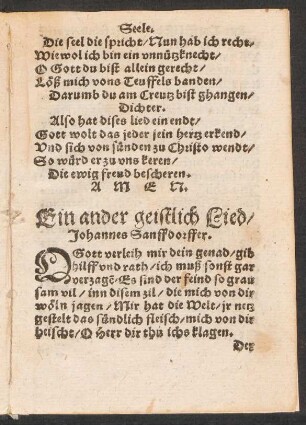 Seele.
Die seel die spricht/Nun hab ich recht/
Wiewol ich bin ein vnnützknecht/
O Gott du bist allein gerecht/
Löß mich vons Teuffels banden/
Darumb du am Creutz bist ghangen/
Dichter.
Also hat dises lied ein endt/
Gott wolt das jeder sein hertz erkend/
Vnd sich von sünden zu Christo wendt/
So würd er zu vns keren/
Die ewig freud bescheren.
A M E N.
Ein ander geistlich Lied/
Johannes Sanffdorffer.
O Gott verleih mir dein genad/gib
hilff vnd rath/ich muß sonst gar
verzagē/Es sind der feind so grau
sam vil/inn disem zil/die mich von dir
wöln jagen/Mir hat die Welt/jr netz
gestelt das sündlich fleisch/mich von dir
heischt/O Herr dir thů ichs klagen.
Der